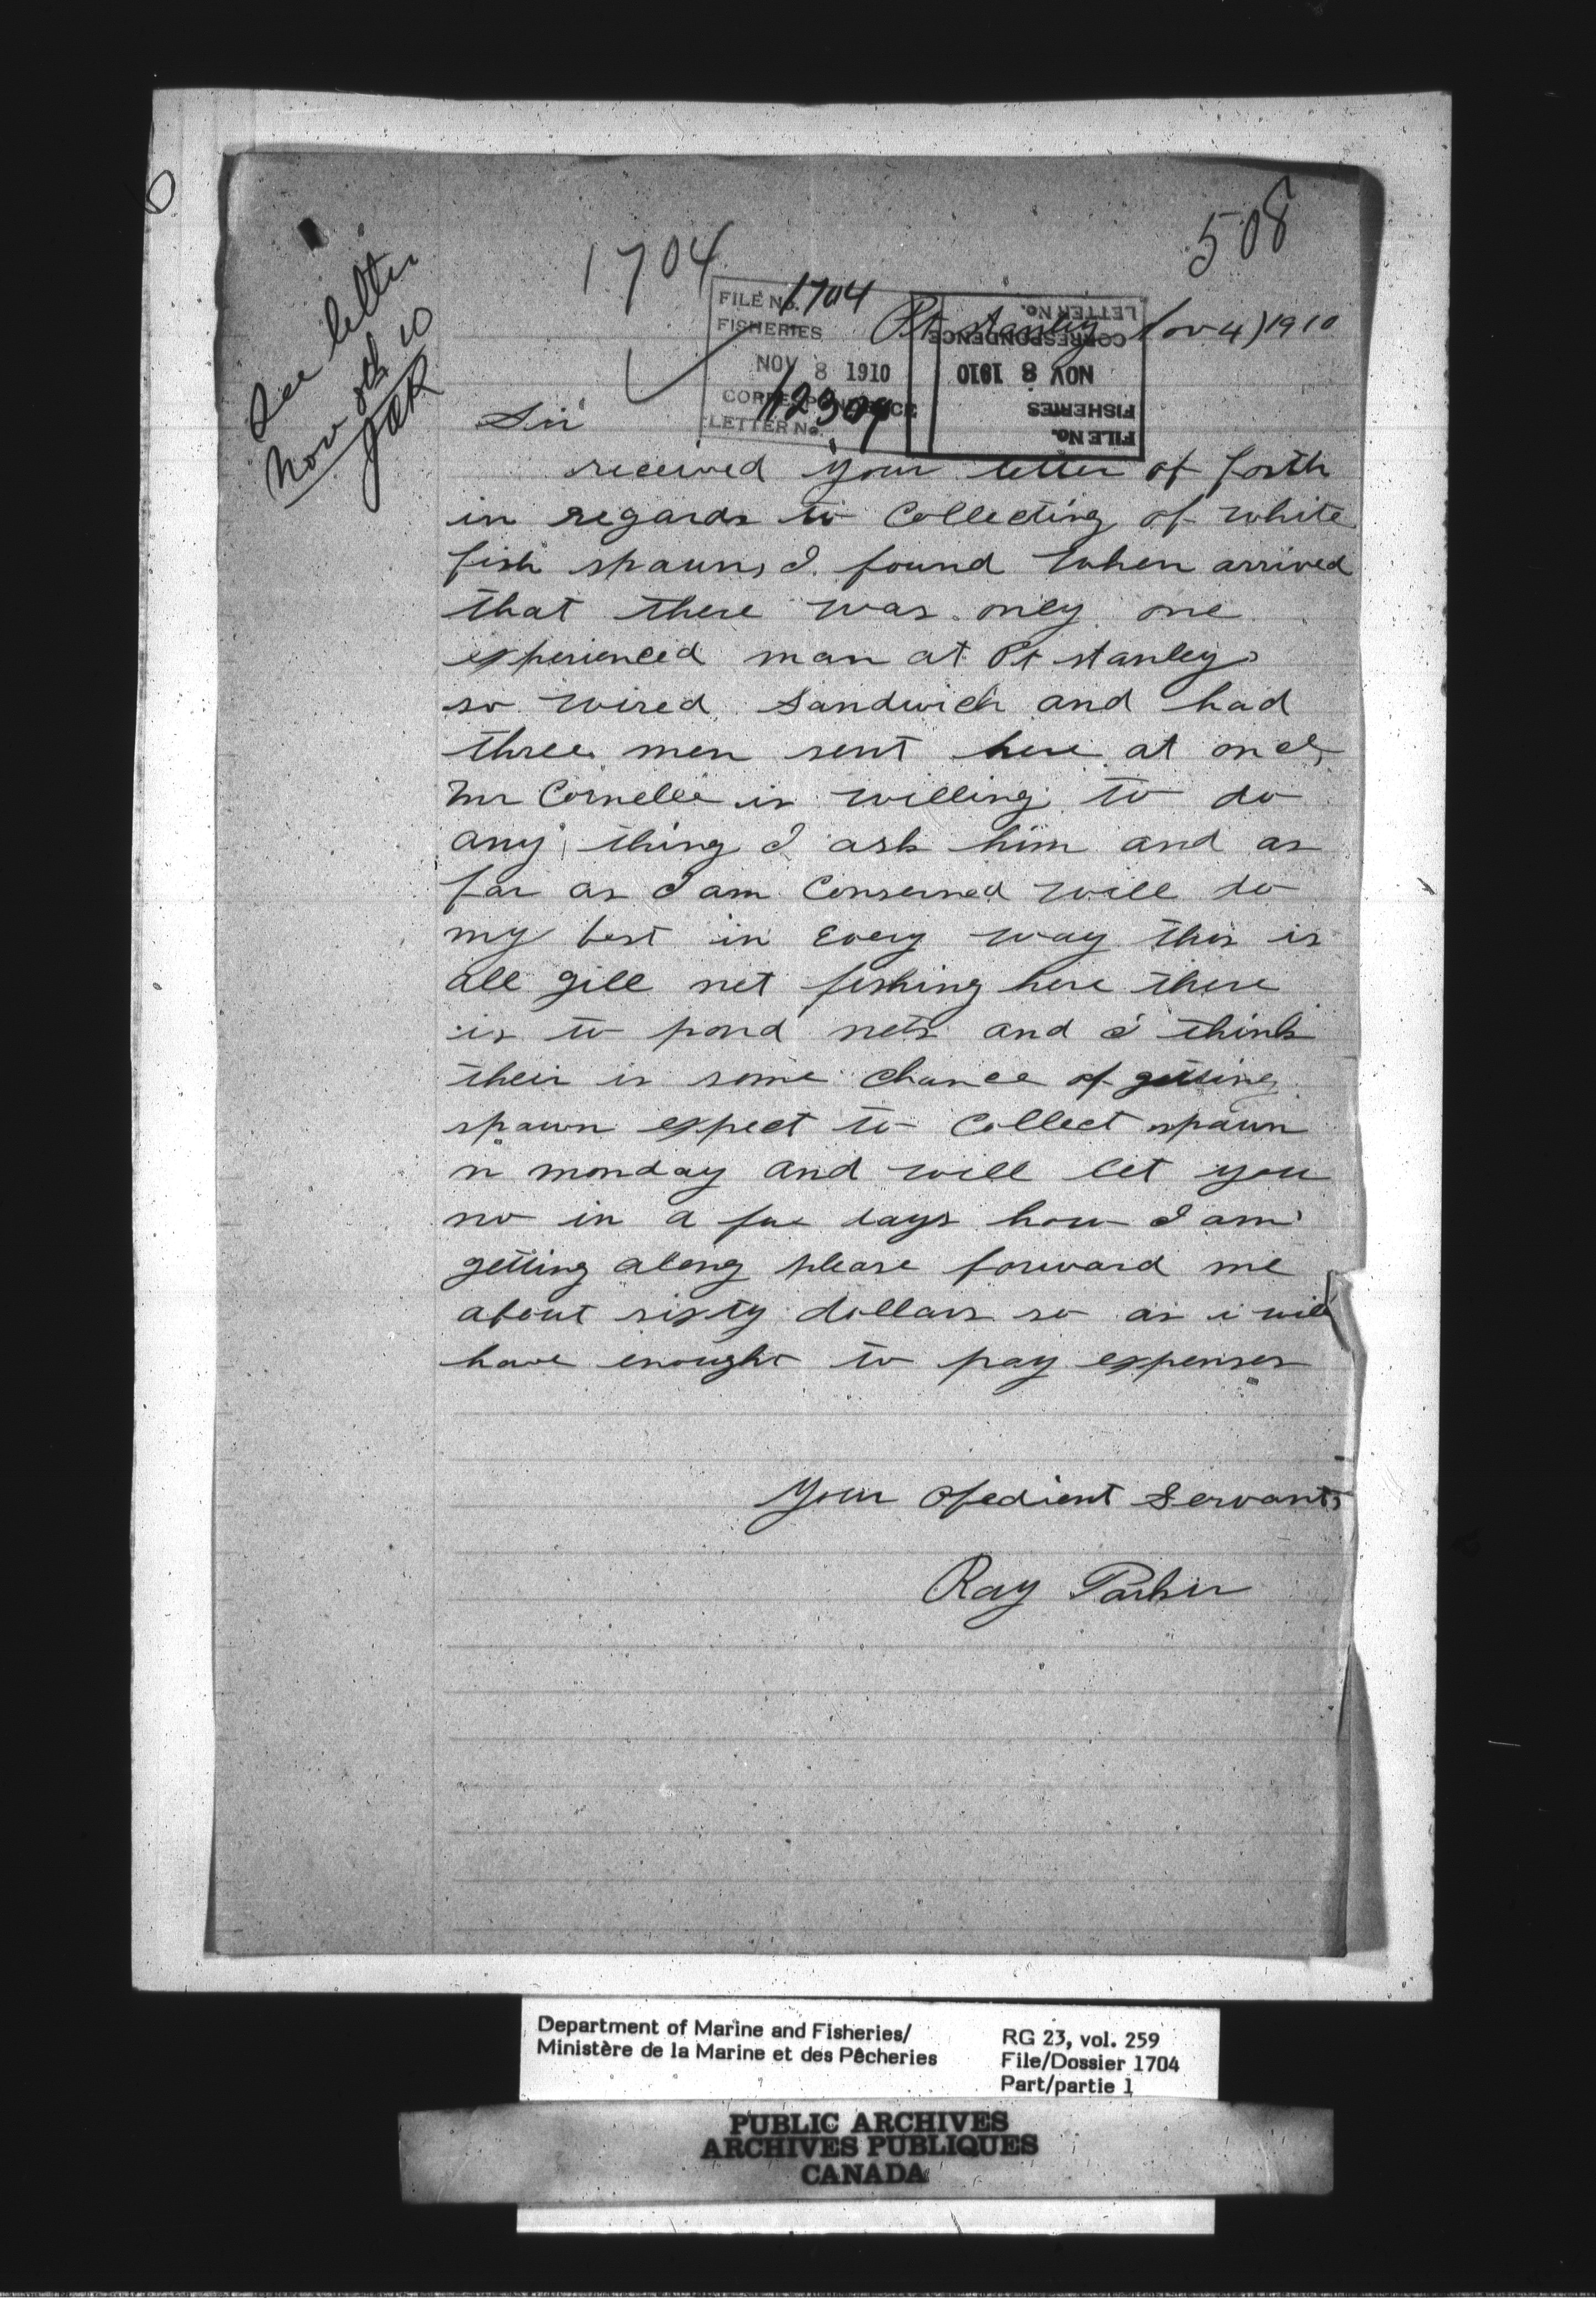 508
1704
See letter
Nov 8th 10
FILE No. 1704
FISHERIES
NOV 8 1910
CORRESPONDENCE
LETTER No.
FILE No.
FISHERIES
NOV 8 1910
CORRESPONDENCE
LETTER No.
Pt stanley Nov 4) 1910
Sir
received your letter of forth
in regards to Collecting of white
fish spawn, I found when arrived
that there was only one
experienced man at Pt stanley
so wired Sandwich and had
three men sent here at once,
Mr Cornelle is willing to do
any thing I ask him and as
far as I am Conserned will do
my best in Every way this is
all gill net fishing here there
is to pond nets and i think
their is some chance of getting
spawn expect to Collect spawn
n monday and will let you
no in a fue days how I am
getting along please forward me
about sixty dollars so as i will
have enought to pay expenses
Your obedient Servant,
Ray Parker
Department of Marine and Fisheries/
Ministère de la Marine et des Pêcheries
RG 23, vol. 259
File/Dossier 1704
Part/partie 1
PUBLIC ARCHIVES
ARCHIVES PUBLIQUES
CANADA